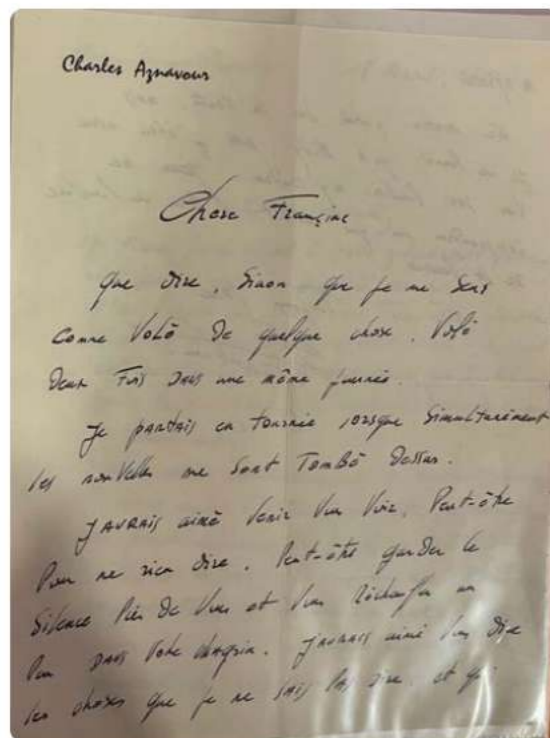 Charles Aznavour
Chère Françoise
Que dire, sinon que je me sens
comme volé de quelque chose. Volé
deux fois dans une même journée.
Je partais en tournée lorsque simultanément
les nouvelles me sont tombé dessus.
J'aurais aimé venir vous voir, peut-être
pour ne rien dire. Peut-être garder le
silence près de vous et vous réchauffer un
peu dans votre chagrin. J'aurais aimé vous dire
les choses que je ne sais pas dire, et qui